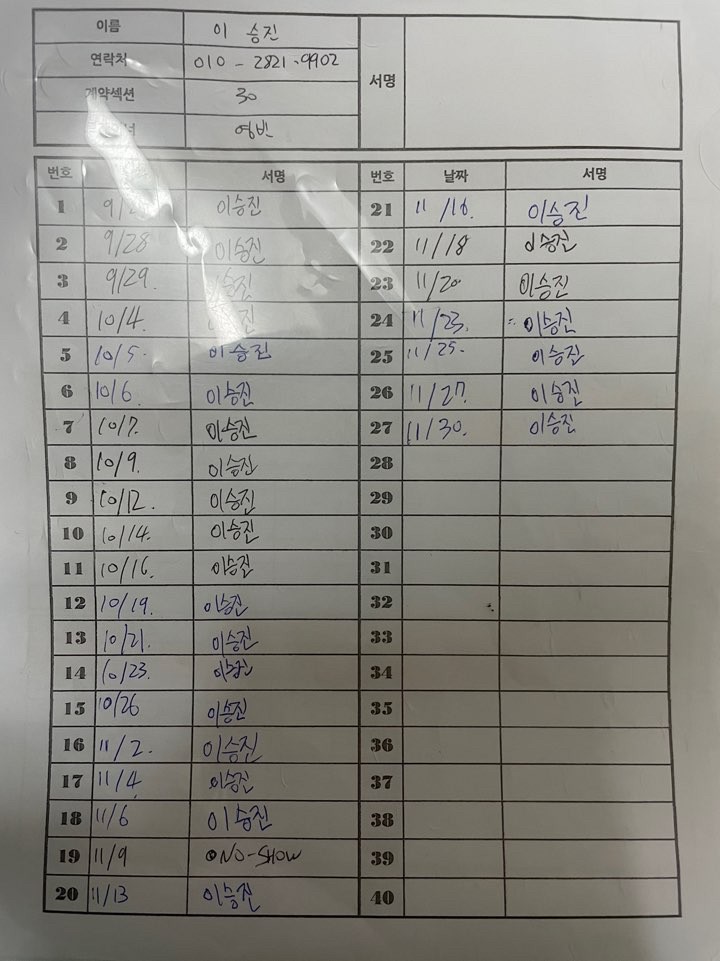 이름 이 승진
연락처 010 - 2821-9902
계약섹션 30
영빈
서명
번호 서명
1 이승진
2 9/28 이승진
3 9/29. 이승진
4 10/4. 이승진
5 10/5. 이승진
6 10/6. 이승진
7 10/7. 이승진
8 10/9. 이승진
9 10/12. 이승진
10 10/14. 이승진
11 10/16. 이승진
12 10/19. 이승진
13 10/21. 이승진
14 10/23. 이승진
15 10/26 이승진
16 11/2. 이승진
17 11/4 이승진
18 11/6 이승진
19 11/9 NO-SHOW
20 11/13 이승진
번호 날짜 서명
21 11/16. 이승진
22 11/18 이승진
23 11/20 이승진
24 11/23. 이승진
25 11/25. 이승진
26 11/27. 이승진
27 11/30. 이승진
28
29
30
31
32
33
34
35
36
37
38
39
40